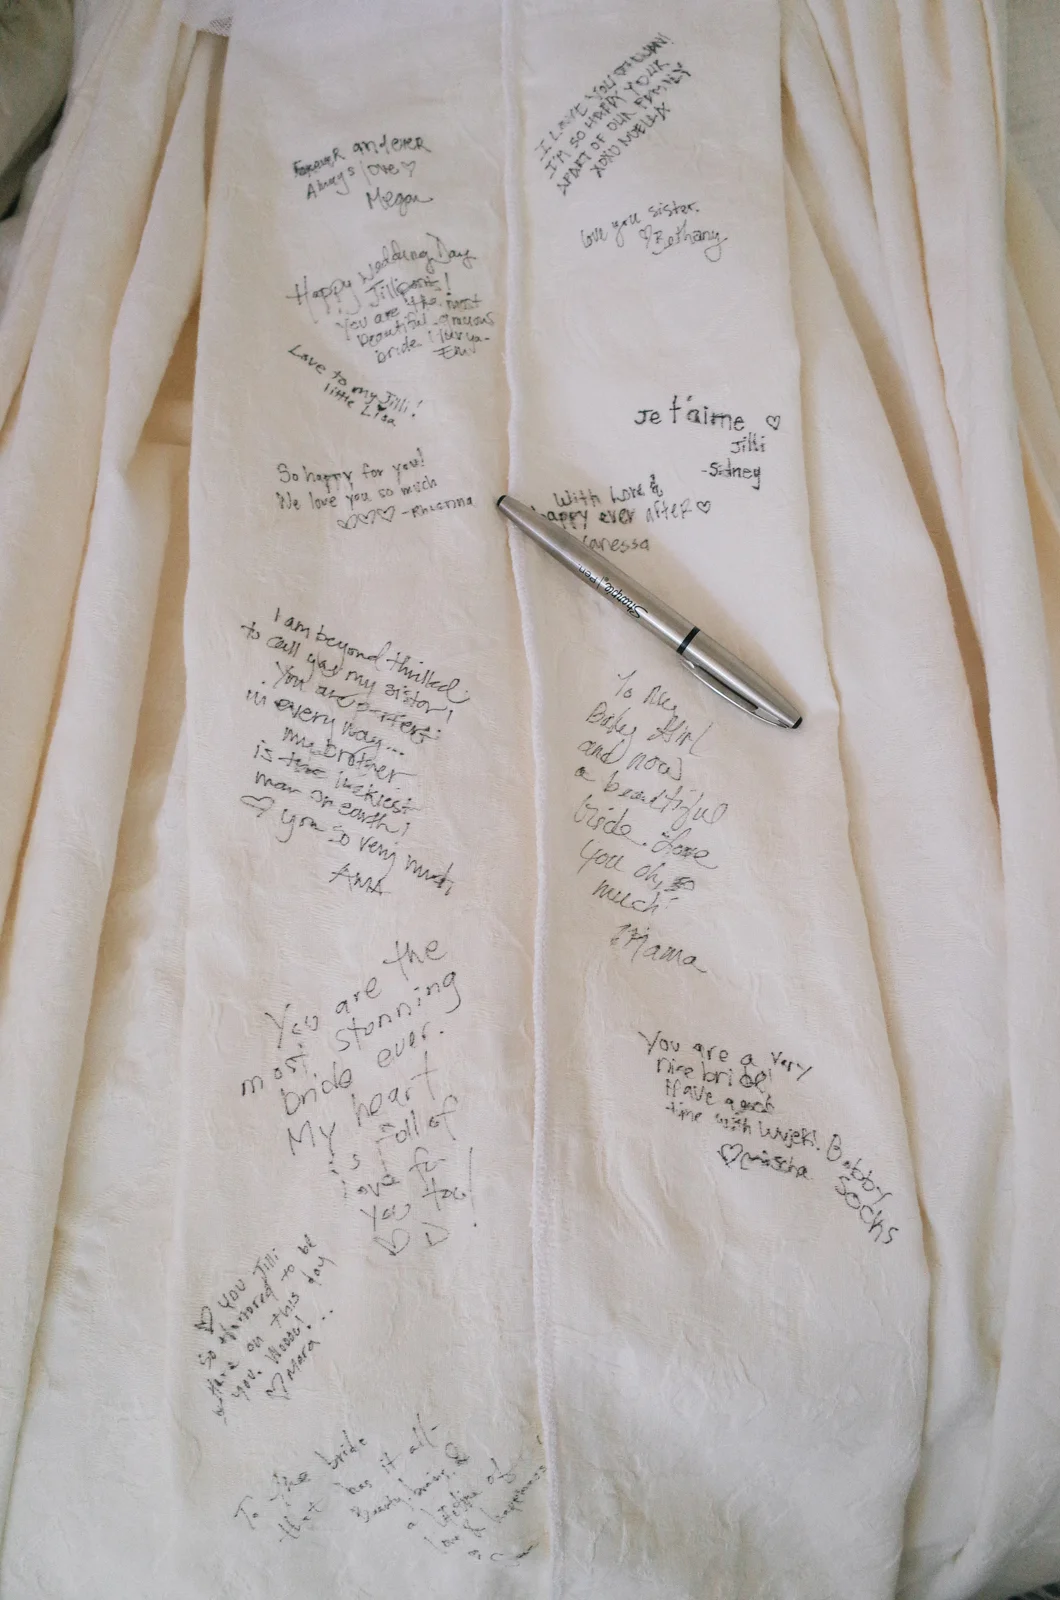 Forever and ever
Always love ♡
Megan
Happy Wedding Day
Jillipants!
You are the most
beautiful gracious
bride. I luv ya-
Em
Love to my Jilli!
little Lisa
So happy for you!
We love you so much
♡♡♡ -Rhianna
I am beyond thrilled
to call you my sister!
You are perfect
in every way...
my brother
is the luckiest
man on earth!
♡ you so very much
AMA
You are the
most stunning
bride ever.
My heart
is full of
love for
you too!
♡ ♡
♡ you Jilli
So honored to be
here on this day
you. Woooo!
♡ Mara
To the bride
that has it all-
Beauty, brains &
a lifetime of
love & happiness
I LOVE YOU
I'M SO HAPPY YOUR
APART OF OUR FAMILY
XOXO NOELLA
love you sister.
♡Bethany
Je t'aime ♡
Jilli
-Sidney
With Love &
happy ever after ♡
Vanessa
Sharpie. Pen.
To my
Baby Girl
and now
a beautiful
bride. Love
you oh, so
much!
Mama
You are a very
nice bride!
Have a good
time with Wujek!
♡Mischa
Bobby
Socks